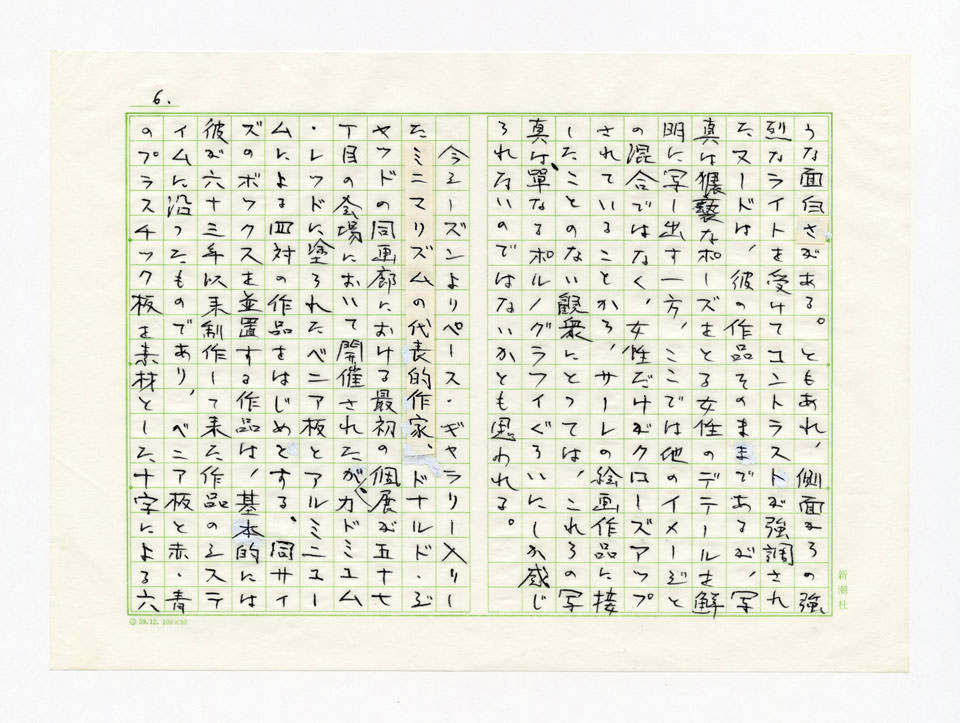 6.
うな面白さがある。ともあれ、側面からの強
烈なライトを受けてコントラストが強調され
たヌードは、彼の作品そのままであるが、写
真は猥褻なポーズをとる女性のデテールを鮮
明に写し出す一方、ここでは他のイメージと
の混合ではなく、女性だけがクローズアップ
されていることから、サーレの絵画作品に接
したことのない観衆にとっては、これらの写
真は、単なるポルノグラフィぐらいにしか感じ
られないのではないかとも思われる。
今シーズンよりペース・ギャラリー入りし
たミニマリズムの代表的作家、ドナルド・ジ
ャッドの同画廊における最初の個展が五十七
丁目の会場において開催されたが、カドミユム
・レッドに塗られたベニア板とアルミニュー
ムによる四対の作品をはじめとする、同サイ
ズのボックスを並置する作品は、基本的には
彼が六十三年以来制作して来た作品のシステ
イムに沿ったものであり、ベニア板と赤・青
のプラスチック板を素材とした十字による六
新潮社
59.12. 100×80